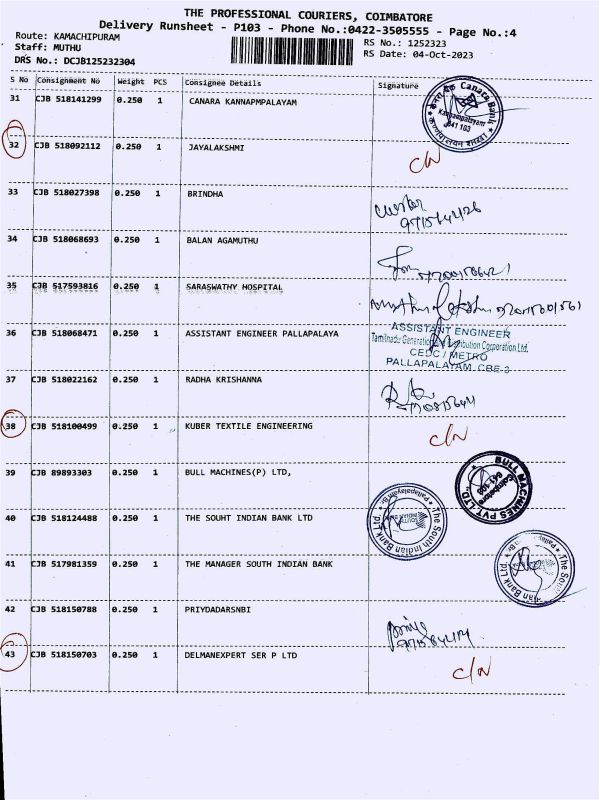 THE PROFESSIONAL COURIERS, COIMBATORE
Delivery Runsheet - P103 - Phone No.:0422-3505555 - Page No.:4
Route: KAMACHIPURAM
RS No.: 1252323
Staff: MUTHU
RS Date: 04-Oct-2023
DRS No.: DCJB125232304
S No Consignment No Weight PCS Consignee Details Signature
31 CJB 518141299 0.250 1 CANARA KANNAPMPALAYAM
Canara Bank
Kannampalayam
641 103
32 CJB 518092112 0.250 1 JAYALAKSHMI C/N
33 CJB 518027398 0.250 1 BRINDHA
34 CJB 518068693 0.250 1 BALAN AGAMUTHU
35 CJB 517593816 0.250 1 SARASWATHY HOSPITAL
36 CJB 518068471 0.250 1 ASSISTANT ENGINEER PALLAPALAYA
ASSISTANT ENGINEER
Tamilnadu Generation Distribution Corporation Ltd.
CEDC / METRO
PALLAPALAYAM, CBE-3
37 CJB 518022162 0.250 1 RADHA KRISHANNA
38 CJB 518100499 0.250 1 KUBER TEXTILE ENGINEERING C/N
39 CJB 89893303 0.250 1 BULL MACHINES(P) LTD,
BULL MACHINES PVT LTD.
Coimbatore
641 103
40 CJB 518124488 0.250 1 THE SOUHT INDIAN BANK LTD
The South Indian Bank Ltd
41 CJB 517981359 0.250 1 THE MANAGER SOUTH INDIAN BANK
The South Indian Bank Ltd
42 CJB 518150788 0.250 1 PRIYDADARSNBI
43 CJB 518150703 0.250 1 DELMANEXPERT SER P LTD C/N